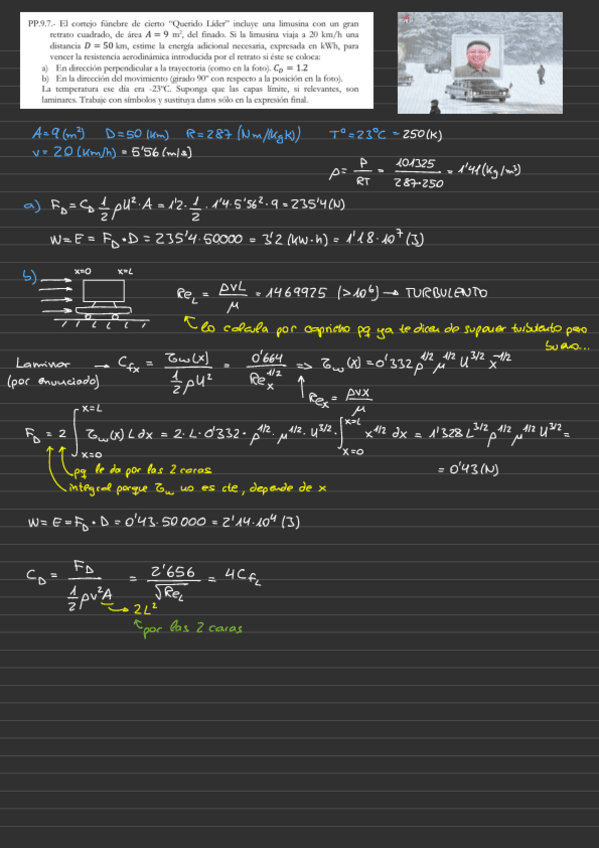 PP.9.7.- El cortejo fúnebre de cierto “Querido Líder” incluye una limusina con un gran
retrato cuadrado, de área A = 9 m², del finado. Si la limusina viaja a 20 km/h una
distancia D = 50 km, estime la energía adicional necesaria, expresada en kWh, para
vencer la resistencia aerodinámica introducida por el retrato si éste se coloca:
a) En dirección perpendicular a la trayectoria (como en la foto). C_D = 1.2
b) En la dirección del movimiento (girado 90° con respecto a la posición en la foto).
La temperatura ese día era -23°C. Suponga que las capas límite, si relevantes, son
laminares. Trabaje con símbolos y sustituya datos sólo en la expresión final.
A=9(m²) D=50(km) R=287(Nm/(kgK)) Tº=23ºC - 250(K)
v = 20(km/h) = 5'56(m/s)
ρ = P/RT = 101325/287·250 = 1'41(kg/m³)
a) F_D = C_D 1/2 ρU²·A = 1'2·1/2·1'4·5'56²·9 = 235'4(N)
W = E = F_D·D = 235'4·50000 = 3'2(kW·h) = 1'18·10⁷(J)
b) x=0 x=L
Re_L = ρvL/μ = 1469925 (>10⁶) → TURBULENTO
lo calcula por capricho pq ya te dicen de suponer turbulento pero
bueno...
Laminar → C_fx = τw(x)/(1/2 ρU²) = 0'664/Re_x^1/2 => τw(x) = 0'332 ρ^1/2 μ^1/2 U^3/2 x^-1/2
(por enunciado)
Re_x = ρvx/μ
F_D = 2 ∫ x=0 x=L τw(x) L dx = 2·L·0'332·ρ^1/2·μ^1/2·U^3/2·∫ x=0 x=L x^1/2 dx = 1'328 L^3/2 ρ^1/2 μ^1/2 U^3/2 =
= 0'43(N)
pq le da por las 2 caras
integral porque τw no es cte, depende de x
W = E = F_D·D = 0'43·50000 = 2'14·10⁴(J)
C_D = F_D/(1/2 ρv²A) = 2'656/√Re_L = 4C_fL
2L²
por las 2 caras